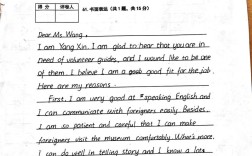 得 分 评卷人
41. 书面表达（共1题，共15分）
Dear Ms Wang,
I am Yang Xin. I am glad to hear that you are in
need of volunteer guides, and I would like to be one
of them. I believe I am a good fit for the job.
Here are my reasons.
First, I am very good at speaking English and
I can communicate with foreigners easily. Besides,
I am so patient and careful that I can make
foreigners visit the museum comfortably. What's more,
I can do well in telling story and I know a lot